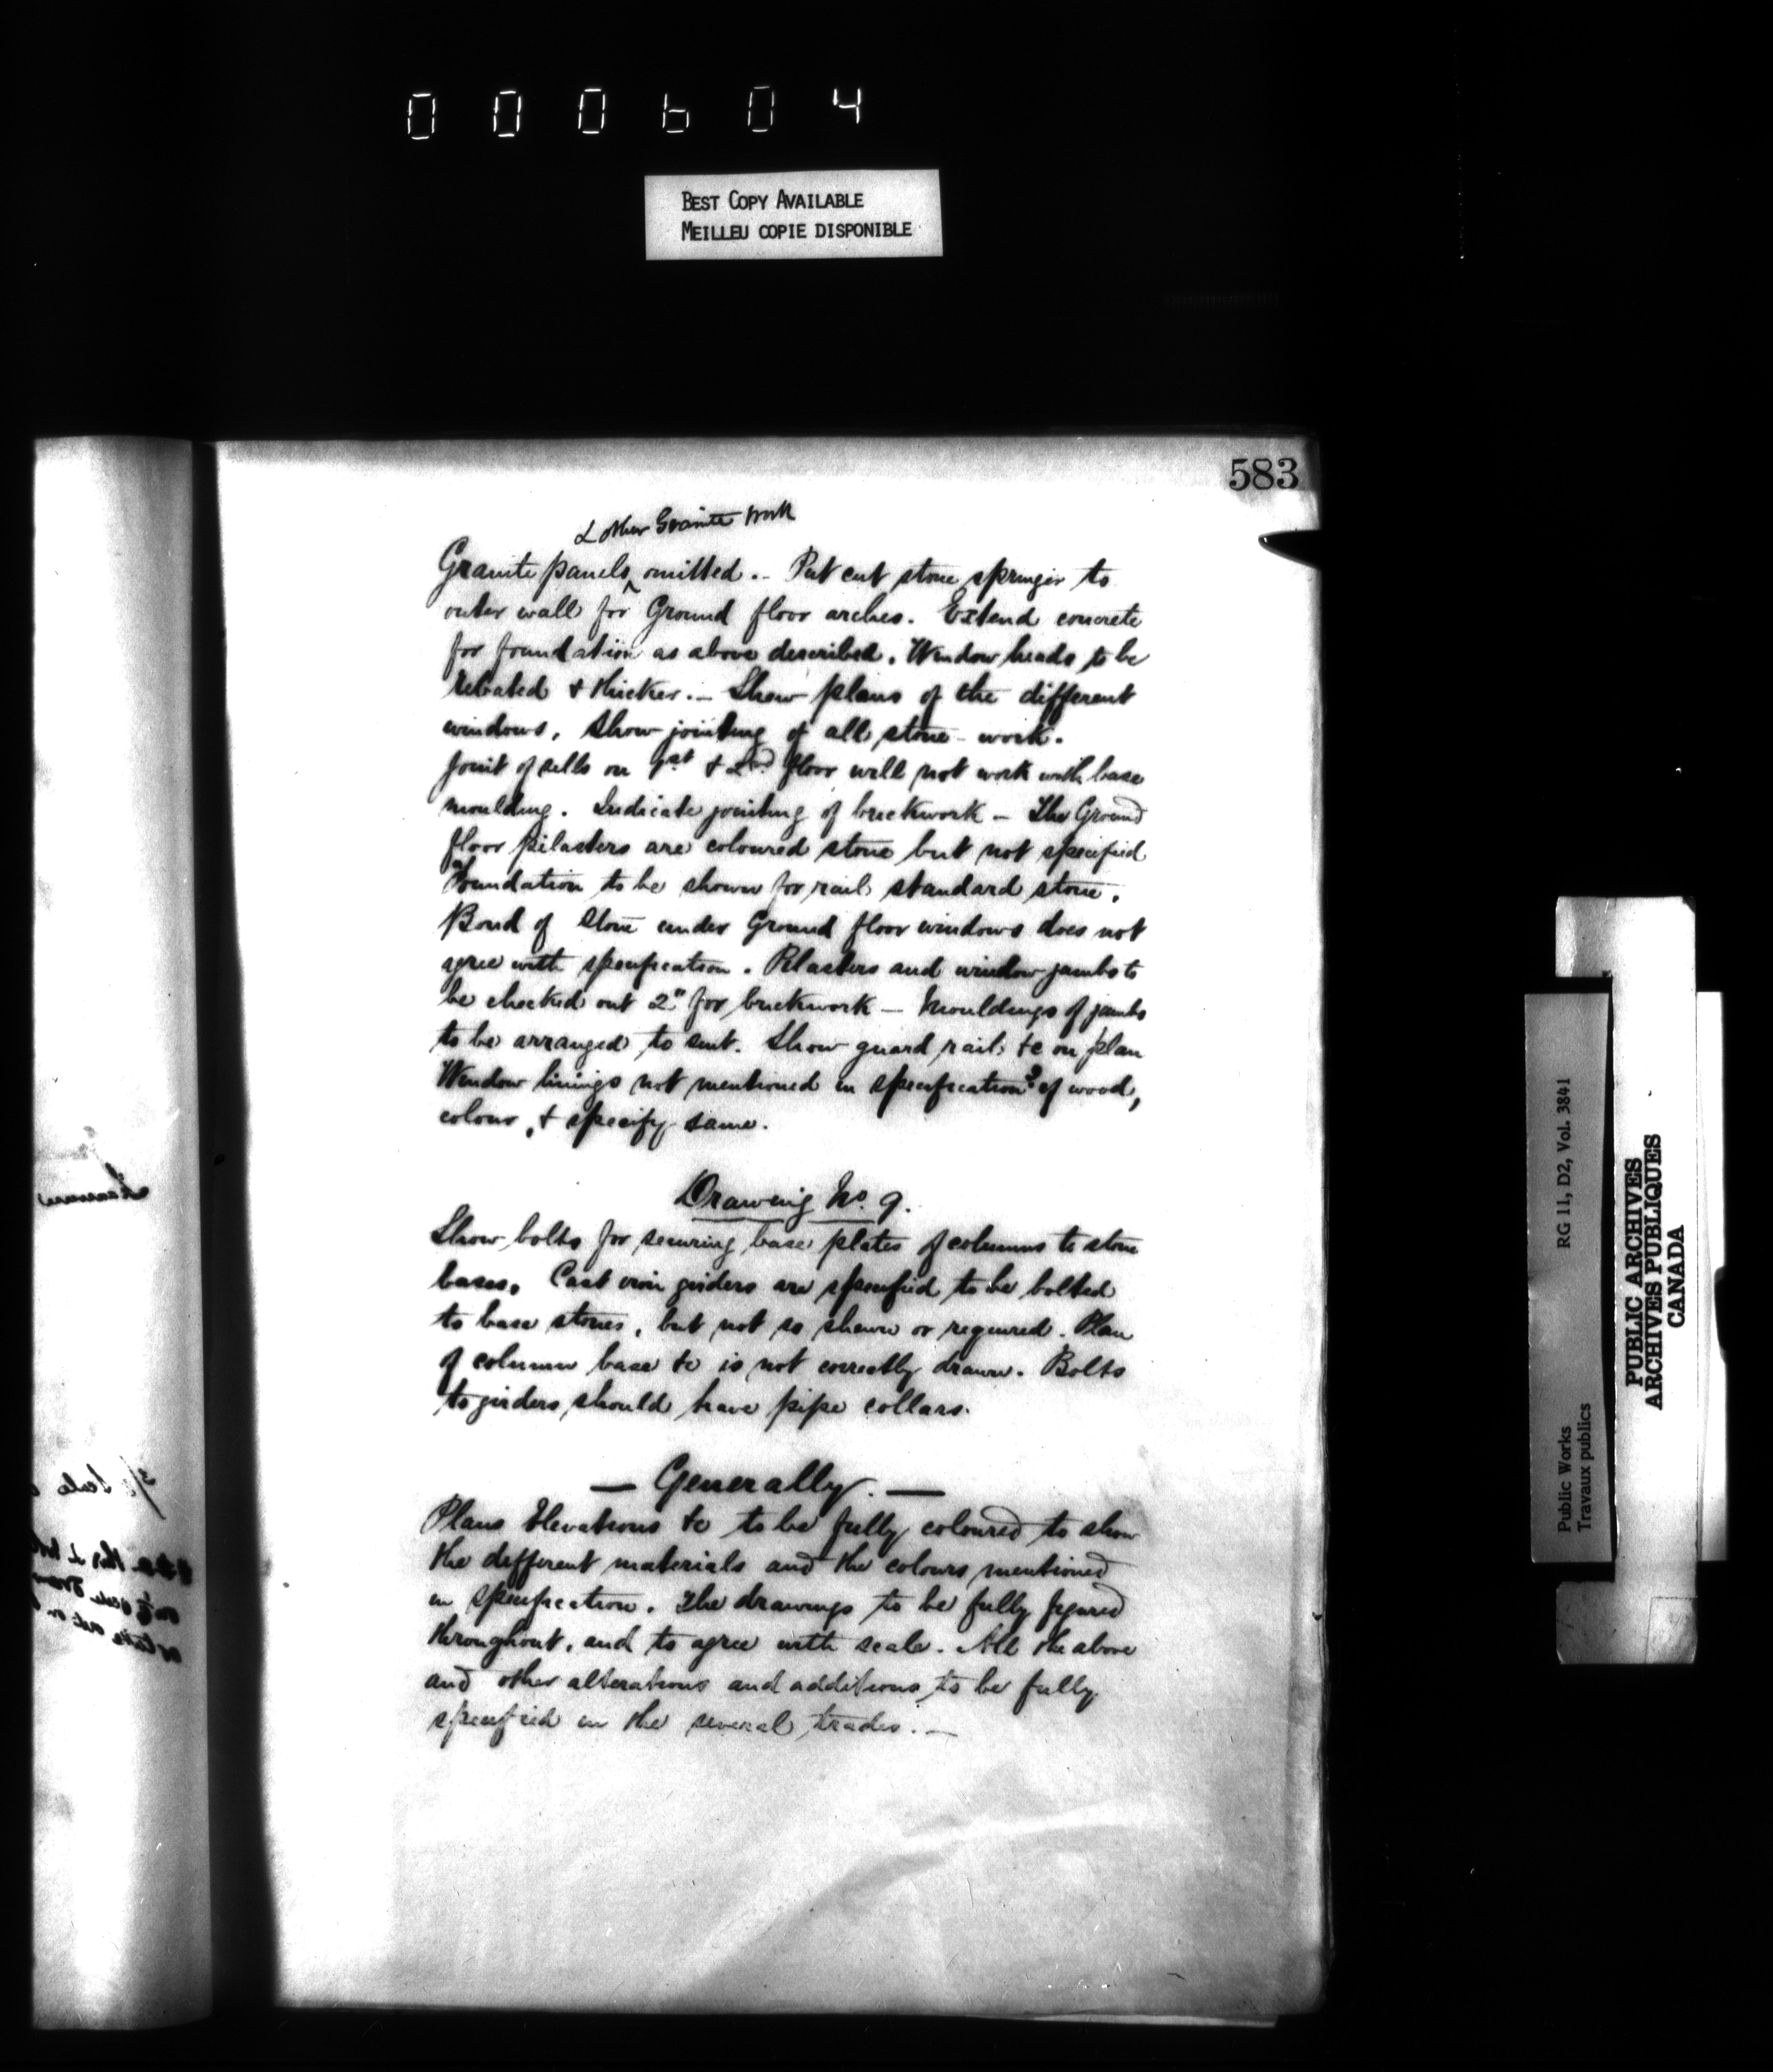 000604
BEST COPY AVAILABLE
MEILLEU COPIE DISPONIBLE
583
& other Granite work
Granite panels ^ omitted. - Put cut stone springer to
outer wall for Ground floor arches. Extend concrete
for foundation as above described. Window heads to be
rebated & thicker. - Show plans of the different
windows, show jointing of all stone-work.
Joint of sills on 1st & 2nd floor will not work with base
moulding. Indicate jointing of brickwork - The Ground
floor pilasters are coloured stone but not specified
Foundation to be shown for rail standard stone.
Bond of stone under Ground floor windows does not
agree with specification. Pilasters and window jambs to
be checked out 2" for brickwork - Mouldings of jambs
to be arranged to suit. Show guard rail &c on plan
Window linings not mentioned in specification? of wood,
colour, & specify same.
Drawing No. 9.
Show bolts for securing base plates of columns to stone
bases. Cast iron girders are specified to be bolted
to base stones, but not so shewn or required. Plan
of column base &c is not correctly drawn. Bolts
to girders should have pipe collars.
— Generally. —
Plans Elevations &c to be fully coloured to show
the different materials and the colours mentioned
in specification. The drawings to be fully figured
throughout, and to agree with scale. All the above
and other alterations and additions to be fully
specified in the several trades. —
Public Works RG 11, D2, Vol. 3841
Travaux publics
PUBLIC ARCHIVES
ARCHIVES PUBLIQUES
CANADA